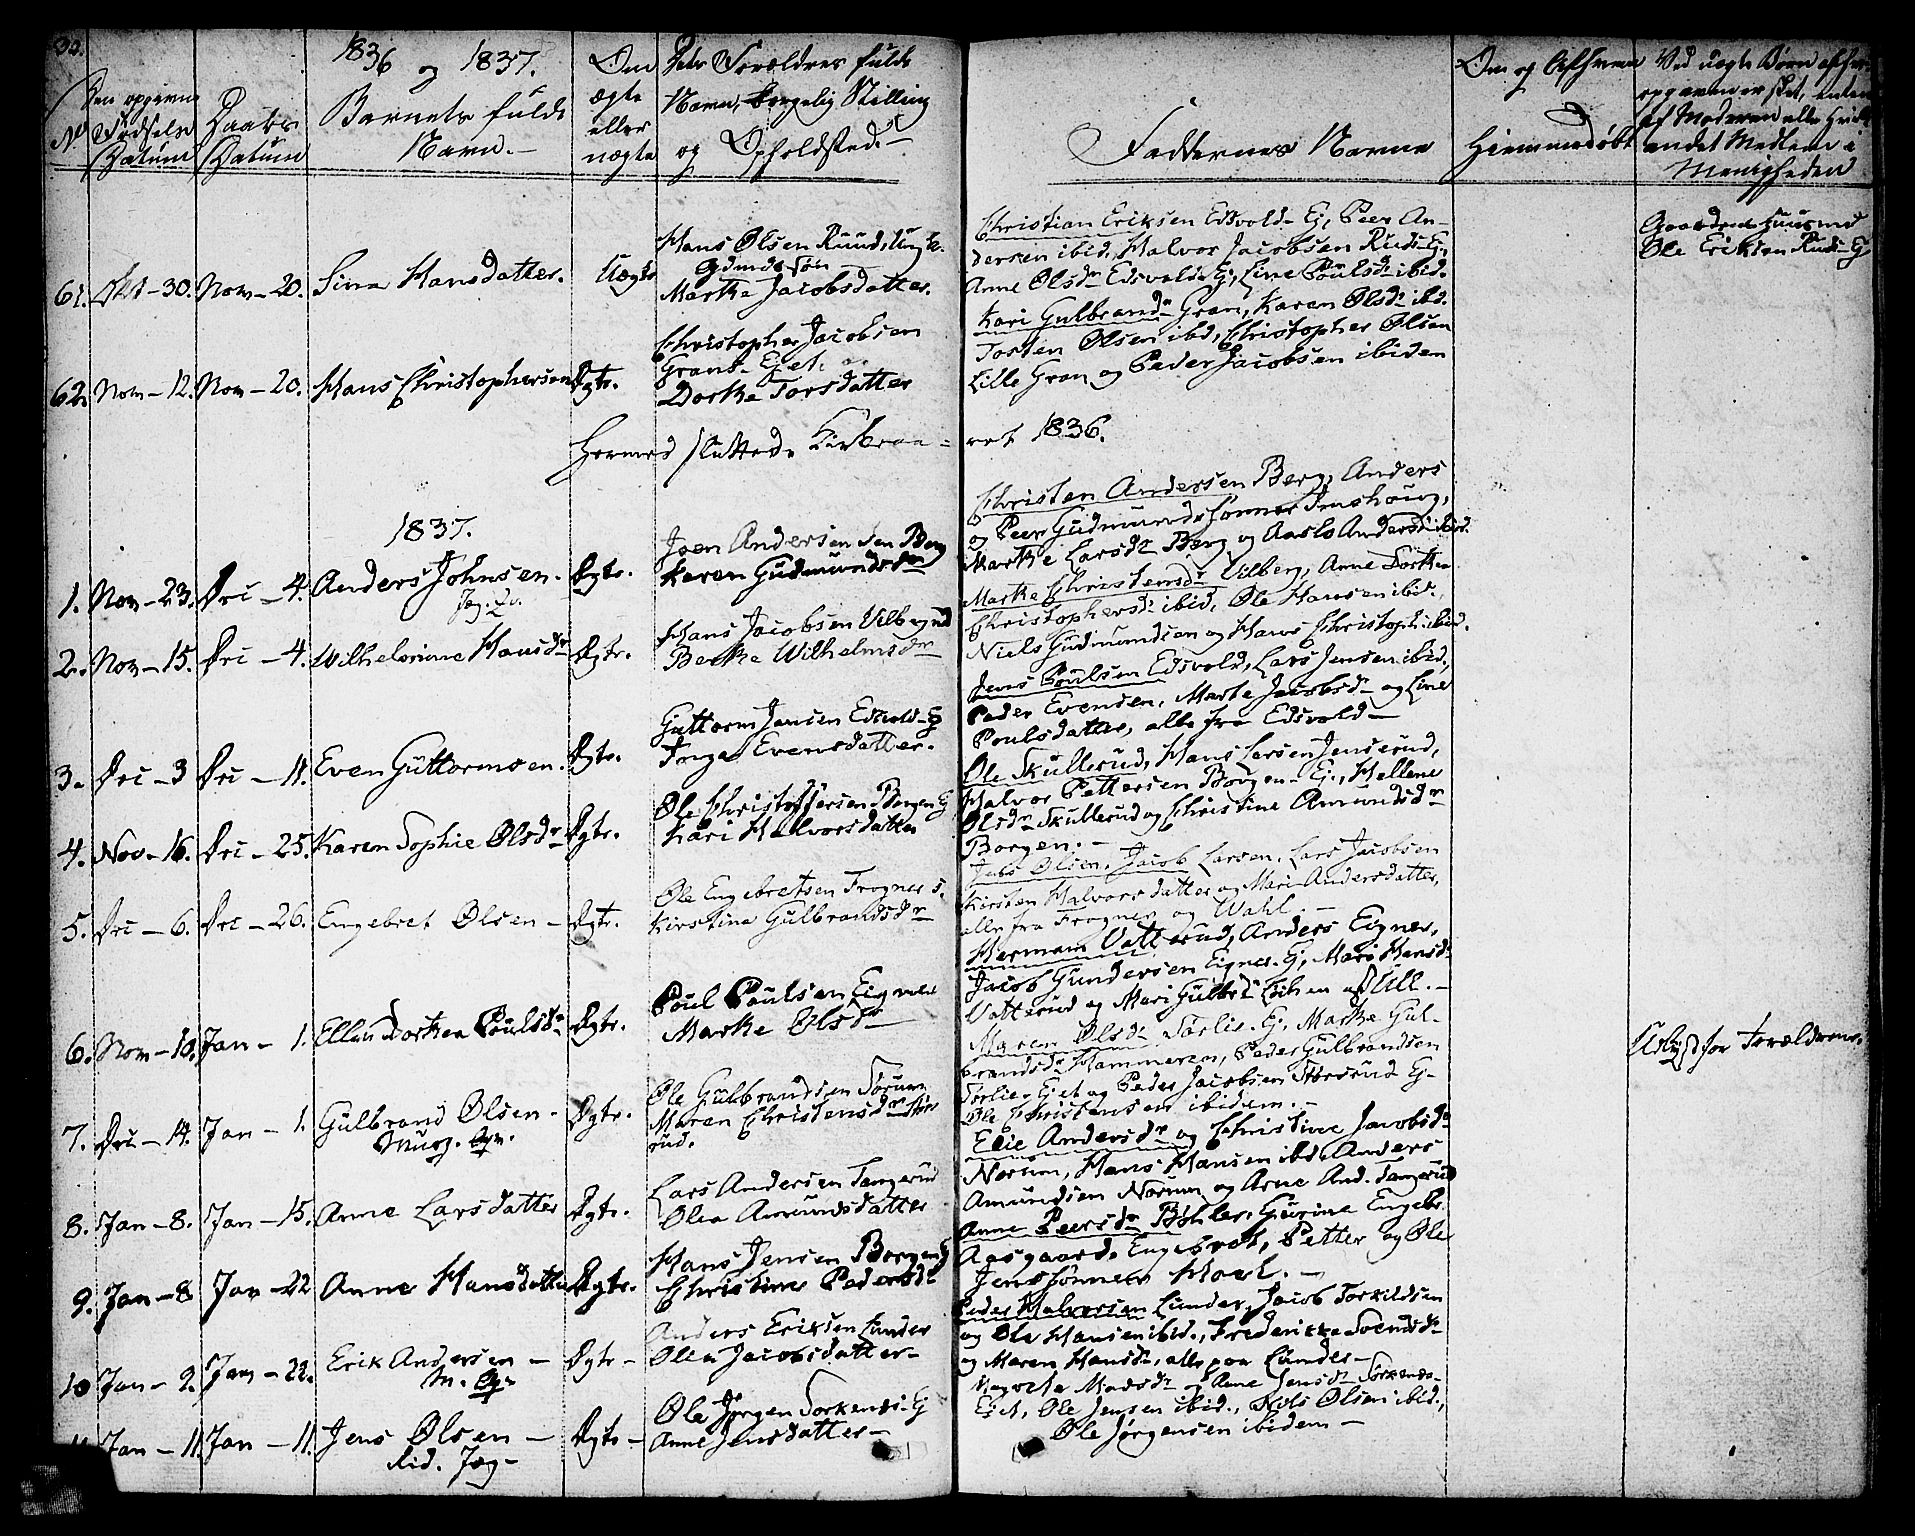 30.
1836 og 1837.
No
Den opgivne Fødsels Datum
Daabs Datum
Barnets fulde Navn.-
Om ægte eller uægte
Forældres fulde Navn, borgelig Stilling og Opholdsted.-
Faddernes Navne
Hjemmedøbt
andet Medlem i Menigheden
61. Oct-30. Nov-20. Sina Hansdatter. Uægte
Hans Olsen Ruud, Ungk.
Marthe Jacobsdatter.
Christian Eriksen Edsvold-Ej, Peer An-
dersen ibid, Halvor Jacobsen Ruds-Ej,
Anne Olsdr Edsvold-Ej, Line Poulsdr ibid.
Ole Eriksen Ruds-Ej
62. Nov-12. Nov-20. Hans Christophersen Ægte.
Christopher Jacobsen
Grans-Ejet.
Dorthe Torsdatter
Kari Gulbrandsdr Gran, Karen Olsdr ibd.
Torsten Olsen ibd, Christopher Olsen
Lille Gran og Peder Jacobsen ibidem
Hermed sluttede Kirkeaa-
ret 1836.
1837.
1. Nov-23. Dec-4. Anders Johnsen. Ægte.
Joen Andersen Berg
Karen Gudmundsdr
Christen Andersen Berg, Anders
og Peer Gudmunds Sønner
Marthe Larsdr Berg og Andersdr ibid.
2. Nov-15. Dec-4. Wilhelmine Hansdr Ægte.
Hans Jacobsen Vilberg
Berthe Wilhelmsdr
Marthe Christensdr Vilberg, Anne Dorthea
Christophersdr ibid, Ole Hansen ibid.
Niels Gudmundsen og Hans Christoph. ibid.
3. Dec-3 Dec-11. Even Guttormsen. Ægte.
Guttorm Jensen Edsvold-Ej
Evensdatter.
Jens Poulsen Edsvold, Lars Jensen ibid,
Peder Evensen, Marthe Jacobsdr og Line
Poulsdatter, alle fra Edsvold-
4. Nov-16. Dec-25. Karen Sophie Olsdr Ægte.
Ole Christoffersen Borgen Ej
Kari Halvorsdatter
Ole Skullerud, Hans Larsen Jenserud,
Halvor Pettersen Borgen-Ej., Hellene
Olsdr Skullerud og Christine Amundsdr
Borgen.-
5. Dec-6. Dec-26. Engebret Olsen- Ægte.
Ole Engebretsen Frogner
Kirstine Gulbrandsdr
Olsen, Jacob Larsen, Lars Jacobsen
Kirsten Halvorsdatter og Mari Andersdatter,
alle fra Frogner og Wahl.-
6. Nov-10. Jan-1. Ellen Dorthea Poulsdr Ægte.
Poul Poulsen
Marthe Olsdr
Herman Vatterud, Anders Eigner,
Jacob Gundersen Eigner-Ej, Mari Hansdr
Vatterud og Mari Gulbrdr
7. Dec-14. Jan-1. Gulbrand Olsen- Ægte.
Ole Gulbrandsen Sørum
Maren Christensdr
rud.
Maren Olsdr Sørlie-Ej, Marthe Gul-
brandsdr Hammeren, Peder Gulbrandsen
Sørlie-Ejet og Peder Jacobsen Ej-
Ole Christensen ibidem.-
for Forældrene.
8. Jan-8. Jan-15. Anne Larsdatter Ægte.
Lars Andersen Tangerud
Olea Amundsdatter
Elie Andersdr og Christine Jacobsdr
Norum, Hans Hansen ibd, Anders
Amundsen Norum og Arne And. Tangerud
9. Jan-8 Jan-22 Anne Hansdatter Ægte.
Hans Jensen Borgen Ej
Christine Pedersdr
Anne Peersdr Bøhler, Gurine Engebr.
Aasgaard, Engebret, Petter og Ole
Jenssønner Moel.-
10 Jan-2. Jan-22. Erik Andersen- Ægte-
Anders Eriksen Lunder
Olea Jacobsdatter-
Peder Halvorsen Lunder, Jacob Torkildsen
og Ole Hansen ibid., Frederikke Svendsdr
og Maren Hansdr, alle paa Lunder-
Jan-11. Jan-11. Jens Olsen- Ægte-
Ole Jørgen Torkends-Ej
Anne Jensdatter-
Madsdr, Anne Jensdr
Ejet, Ole Jensen ibid., Nils Olsen ibid.,
Ole Jørgensen ibidem-